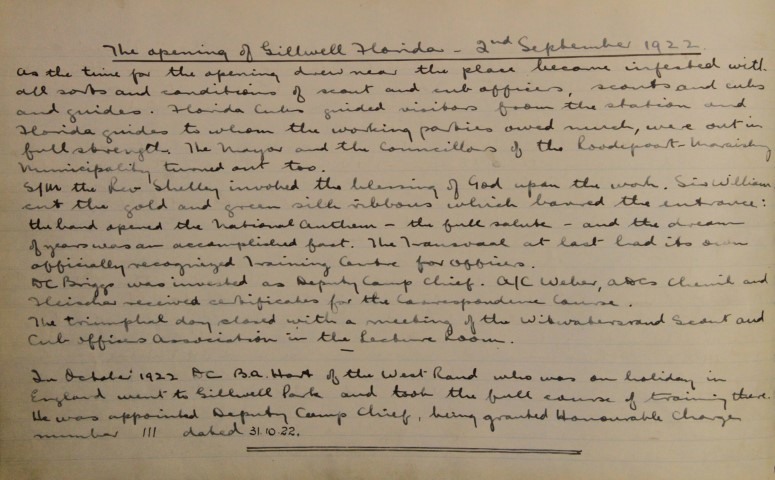 The opening of Gillwell Florida - 2nd September 1922.
As the time for the opening drew near the place became infested with
all sorts and conditions of scout and cub officers, scouts and cubs
and guides. Florida Cubs guided visitors from the station and
Florida guides to whom the working parties owed much, were out in
full strength. The Mayor and the Councillors of the Roodepoort-Maraisburg
Municipality turned out too.
S/M the Rev Shelley invoked the blessing of God upon the work. Sir William
cut the gold and green silk ribbons which barred the entrance:
the band opened the National Anthem - the full salute - and the dream
of years was an accomplished fact. The Transvaal at last had its own
officially recognized Training Centre for officers.
DC Briggs was invested as Deputy Camp Chief. A/C Weber, ADCs and
Fleischer received certificates for the Correspondence Course.
The triumphal day closed with a meeting of the Witwatersrand Scout and
Cub Officers Association in the Lecture Room.
In October 1922 DC B.A. Hart of the West Rand who was on holiday in
England went to Gillwell Park and took the full course of training there.
He was appointed Deputy Camp Chief, being granted Honourable Charge
number 111 dated 31.10.22.